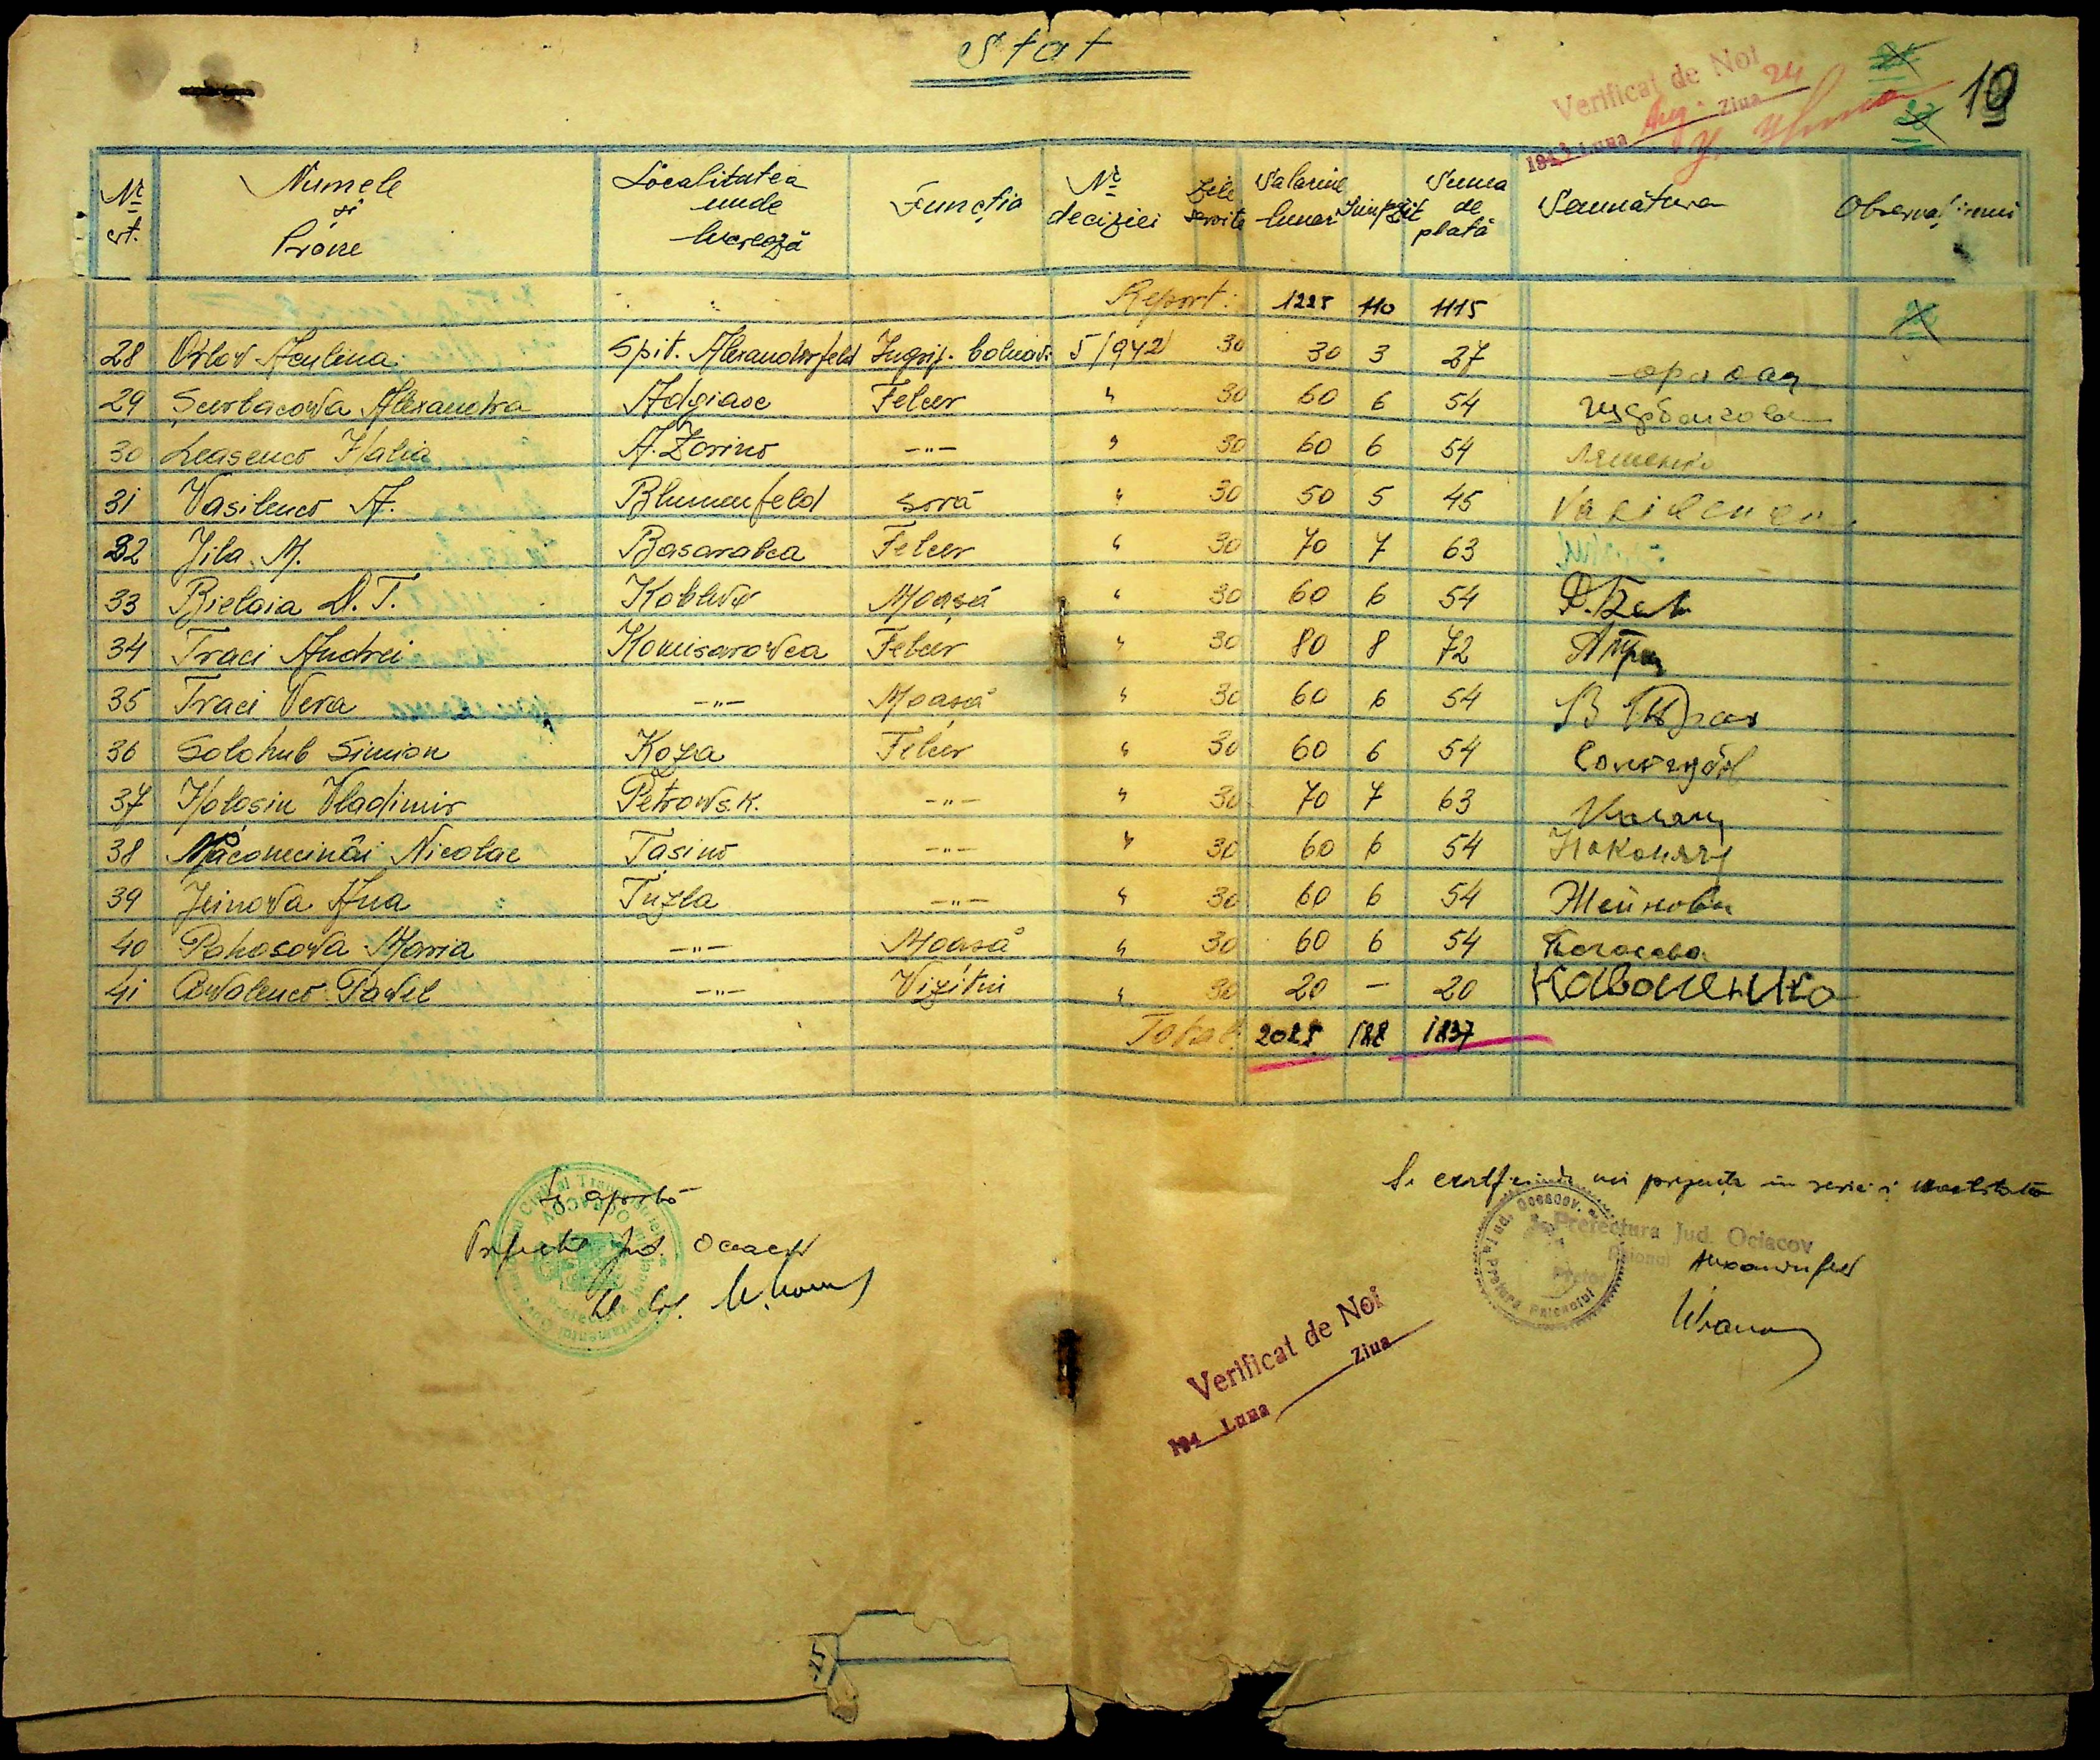 Stat
Verificat de Noi
1943 Luna Aug. Ziua 24
19
Nr crt. Numele și Prone Localitatea unde lucrează Funcția Nr deciziei Zile servite Salariul lunar Impozit Suma de plată Semnătura Observațiuni
Report: 1225 110 1115
28 Orlov Aculina Spit. Alexanderfeld Îngrij. bolnavi 5/942 30 30 3 27
29 Șcurbacowa Alexandra Adgiasc Felcer " 30 60 6 54
30 Leasenco Halia A. Zorino —"— " 30 60 6 54 Ляшенко
31 Vasilenco A. Blumenfeld soră " 30 50 5 45 Vasilenco
32 Jila M. Basarabca Felcer " 30 70 7 63
33 Bielaia D.T. Koblewo Moașă " 30 60 6 54 Д. Бел
34 Traci Andrei Komisarowca Felcer " 30 80 8 72 А Трац
35 Traci Vera —"— Moașă " 30 60 6 54 В Трач
36 Solohub Simion Koza Felcer " 30 60 6 54 Сологуб
37 Holosin Vladimir Petrows.K. —"— " 30 70 7 63
38 Măconecinâi Nicolae Tașino —"— " 30 60 6 54
39 Jeinowa Ana Tuzla —"— " 30 60 6 54 Жейнова
40 Pohasowa Maria —"— Moașă " 30 60 6 54 Погасова
41 Cowalenco Pawel —"— Vizitiu " 30 20 — 20 Каваленко
Total: 2025 188 1837
Se aprobă
Prefectul Jud. Oceacov
Lt. Col.
Se certifică de noi prezența în serviciu
Prefectura Jud. Ociacov
Raionul Alexanderfeld
Pretor
Verificat de Noi
194 Luna Ziua